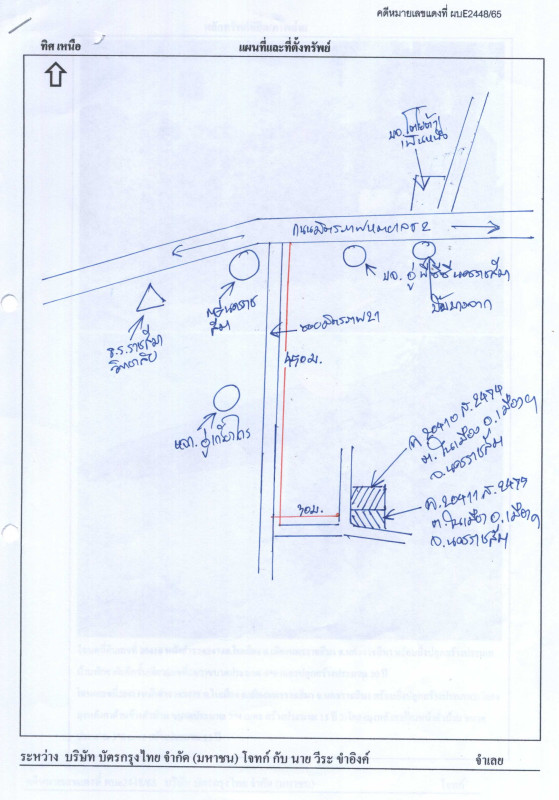 คดีหมายเลขแดงที่ ผบE2448/65
ทิศ เหนือ
แผนที่และที่ตั้งทรัพย์
บจ. โตโยต้า
เป็นหนึ่ง
ถนนมิตรภาพ
2
บจ. อู่ พีซีซี นครราชสีมา
ปั๊มบางจาก
นครราช
สีมา
ร.ร.ราชสีมา
วิทยาลัย
ซอยมิตรภาพ 21
450 ม.
หจก. อู่
30 ม.
ฉ. 20410 ส. 2478
ต. ในเมือง อ. เมืองฯ
จ. นครราชสีมา
ฉ. 20411 ส. 2479
ต. ในเมือง อ. เมืองฯ
จ. นครราชสีมา
ระหว่าง บริษัท บัตรกรุงไทย จำกัด (มหาชน) โจทก์ กับ นาย วีระ ขำอิงค์ จำเลย